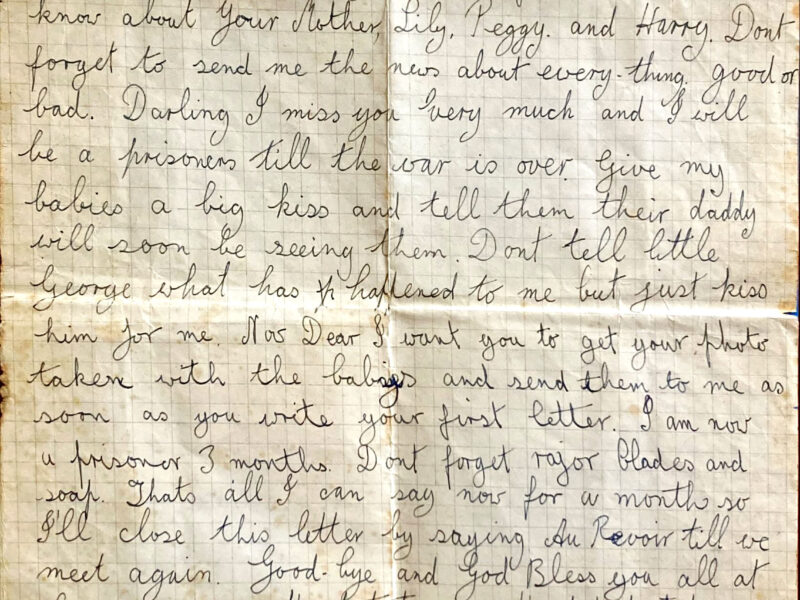 know about Your Mother, Lily, Peggy. and Harry. Dont
forget to send me the news about every-thing. good or
bad. Darling I miss you very much and I will
be a prisoners till the war is over. Give my
babies a big kiss and tell them their daddy
will soon be seeing them. Dont tell little
George what has happened to me but just kiss
him for me. Now Dear I want you to get your photo
taken with the babies and send them to me as
soon as you write your first letter. I am now
a prisoner 3 months. Dont forget rajor blades and
soap. Thats all I can say now for a month so
I'll close this letter by saying Au Revoir till we
meet again. Good-bye and God Bless you all at